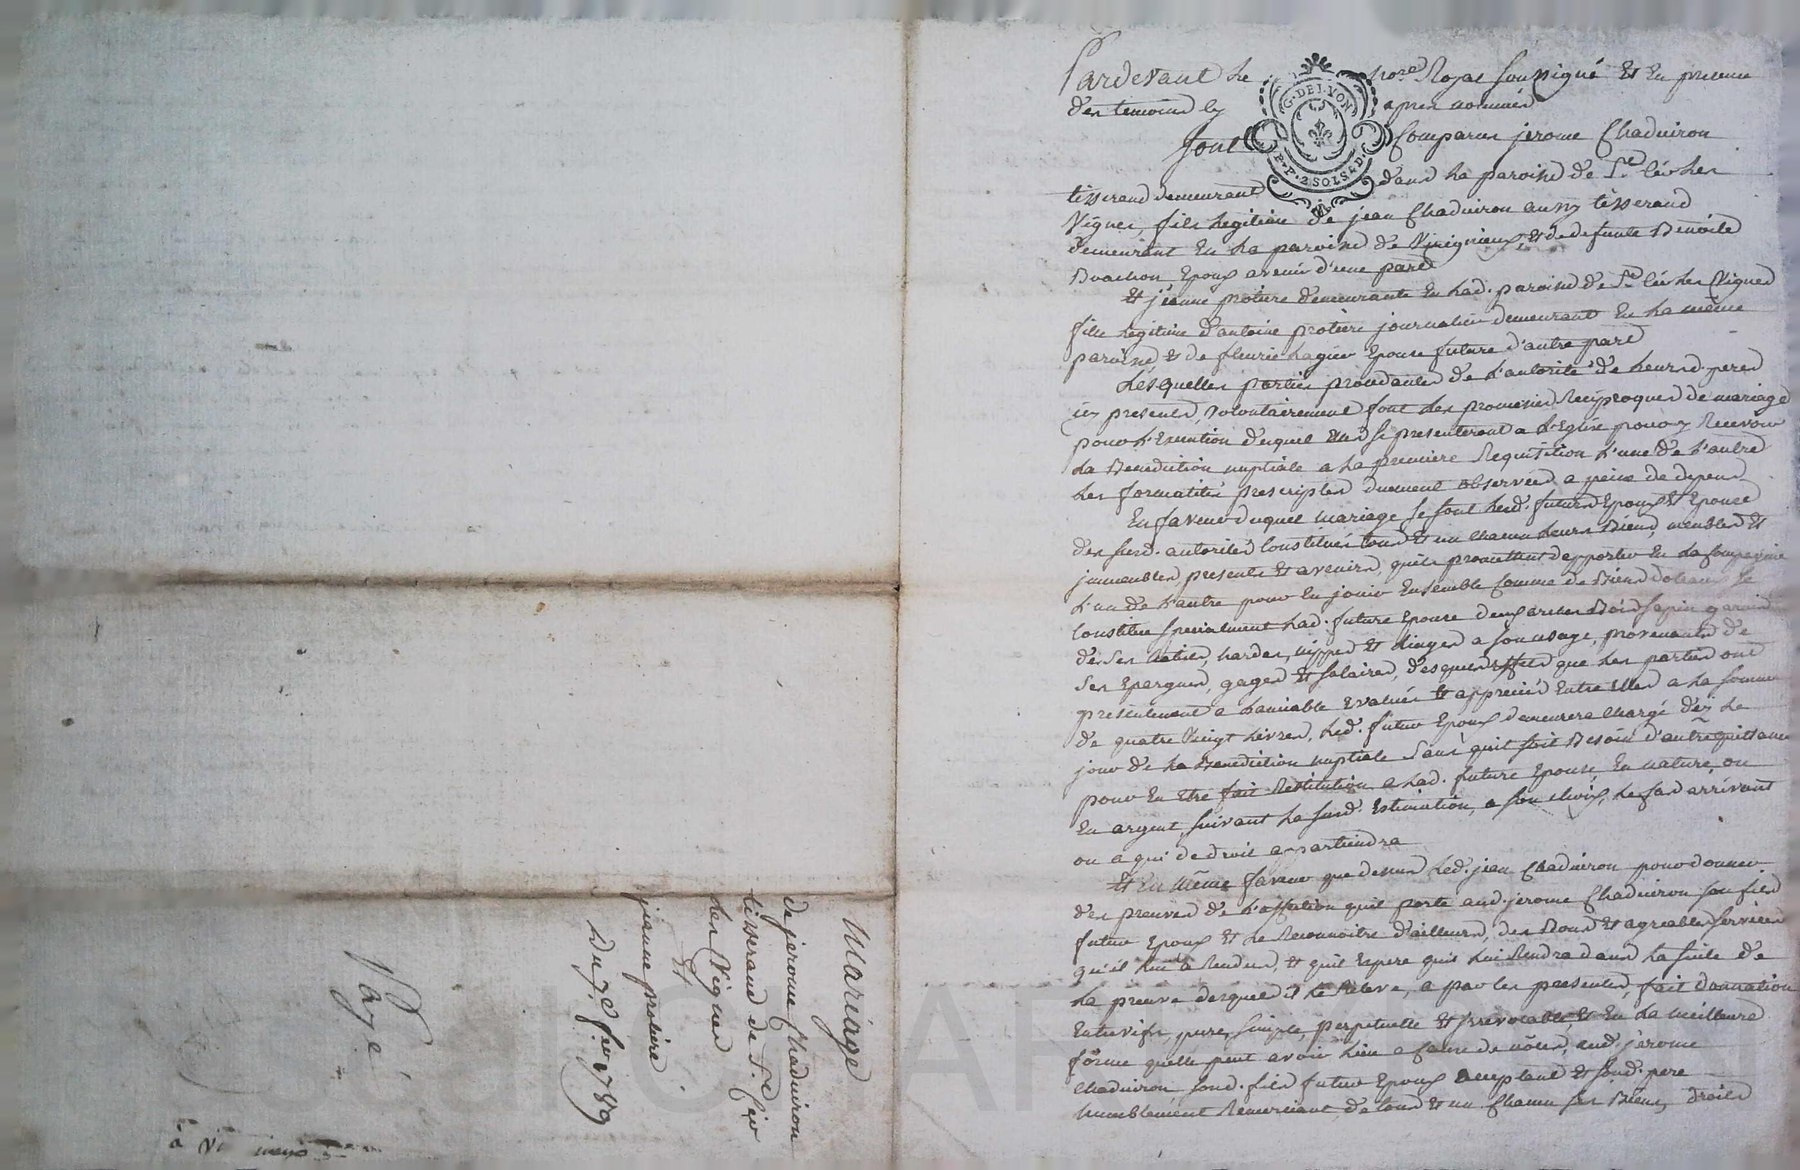 Pardevant le no.re Royal soussigné Et en presence
des temoins cy apres nommés
G. DE LYON
P.P. 2 SOLS 4 D.
sont Comparus jerome Chaduiron
tisserand demeurant dans la paroisse de S.t Cir les
Vignes, fils legitime de jean Chaduiron aussy tisserand
demeurant en la paroisse de Virignieux, Et de defunte Benoite
Epoux avenir d'une part
Et jeanne protiere demeurante en lad. paroisse de S.t Cir les Vignes
fille legitime d'antoine protiere journalier demeurant en la même
paroisse Et de fleurie lagier Epouse future d'autre part
Lesquelles parties procedantes de l'autorité de leursd. peres
icy presents, volontairement font les promesses Reciproques de mariage
pour l'Execution duquel Elles se presenteront a l'Eglise pour y Recevoir
La Benediction nuptiale a la premiere Requisition l'une de l'autre
les formalités prescriptes duement observées a peine de depens
En faveur duquel mariage se sont lesd. futurs Epoux Et Epouse
des susd. autorités Constitués tous Et un chacun leurs Biens, meubles Et
immeubles presents Et avenirs, qu'ils promettent d'apporter En la Compagnie
l'un de l'autre pour En jouir Ensemble Comme de Biens dotaux se
Constitue specialement lad. future Epouse deux arches Bois sapin garnies
de ses habits, hardes, nippes Et linges a son usage, provenants de
ses Epargnes, gages Et salaires, desquels Effets que les parties ont
presentement a l'amiable Evalués Et appreciés Entre Elles a la somme
de quatre Vingt livres, led. futur Epoux demeurera Chargé dès le
jour de la Benediction nuptiale sans qu'il soit Besoin d'autre quittance
pour En Etre fait Restitution a lad. future Epouse, En nature ou
En argent, suivant la susd. Estimation, a son choix, le cas arrivant
ou a qui de droit appartiendra
Et En même faveur que dessus led. jean Chaduiron pour donner
des preuves de l'affection qu'il porte aud. jerome Chaduiron son fils
futur Epoux Et le Reconnoitre d'ailleurs, des Bons Et agreables services
qu'il lui a Rendus, Et qu'il Espere qu'il lui Rendra dans la suite de
la preuve desquels il le Releve, a par les presentes, fait donnation
Entrevifs, pure, simple, perpetuelle Et irrevocable, Et En la meilleure
forme quelle peut avoir lieu a Cause de nôces, aud. jerome
Chaduiron sond. fils futur Epoux acceptant Et sond. pere
humblement Remerciant de tous Et un Chacun ses Biens, droits
Mariage
de jerome Chaduiron
tisserand de S.t Cir
les Vignes
Et
jeanne protière
Du 7.e f.er 1789
Payé